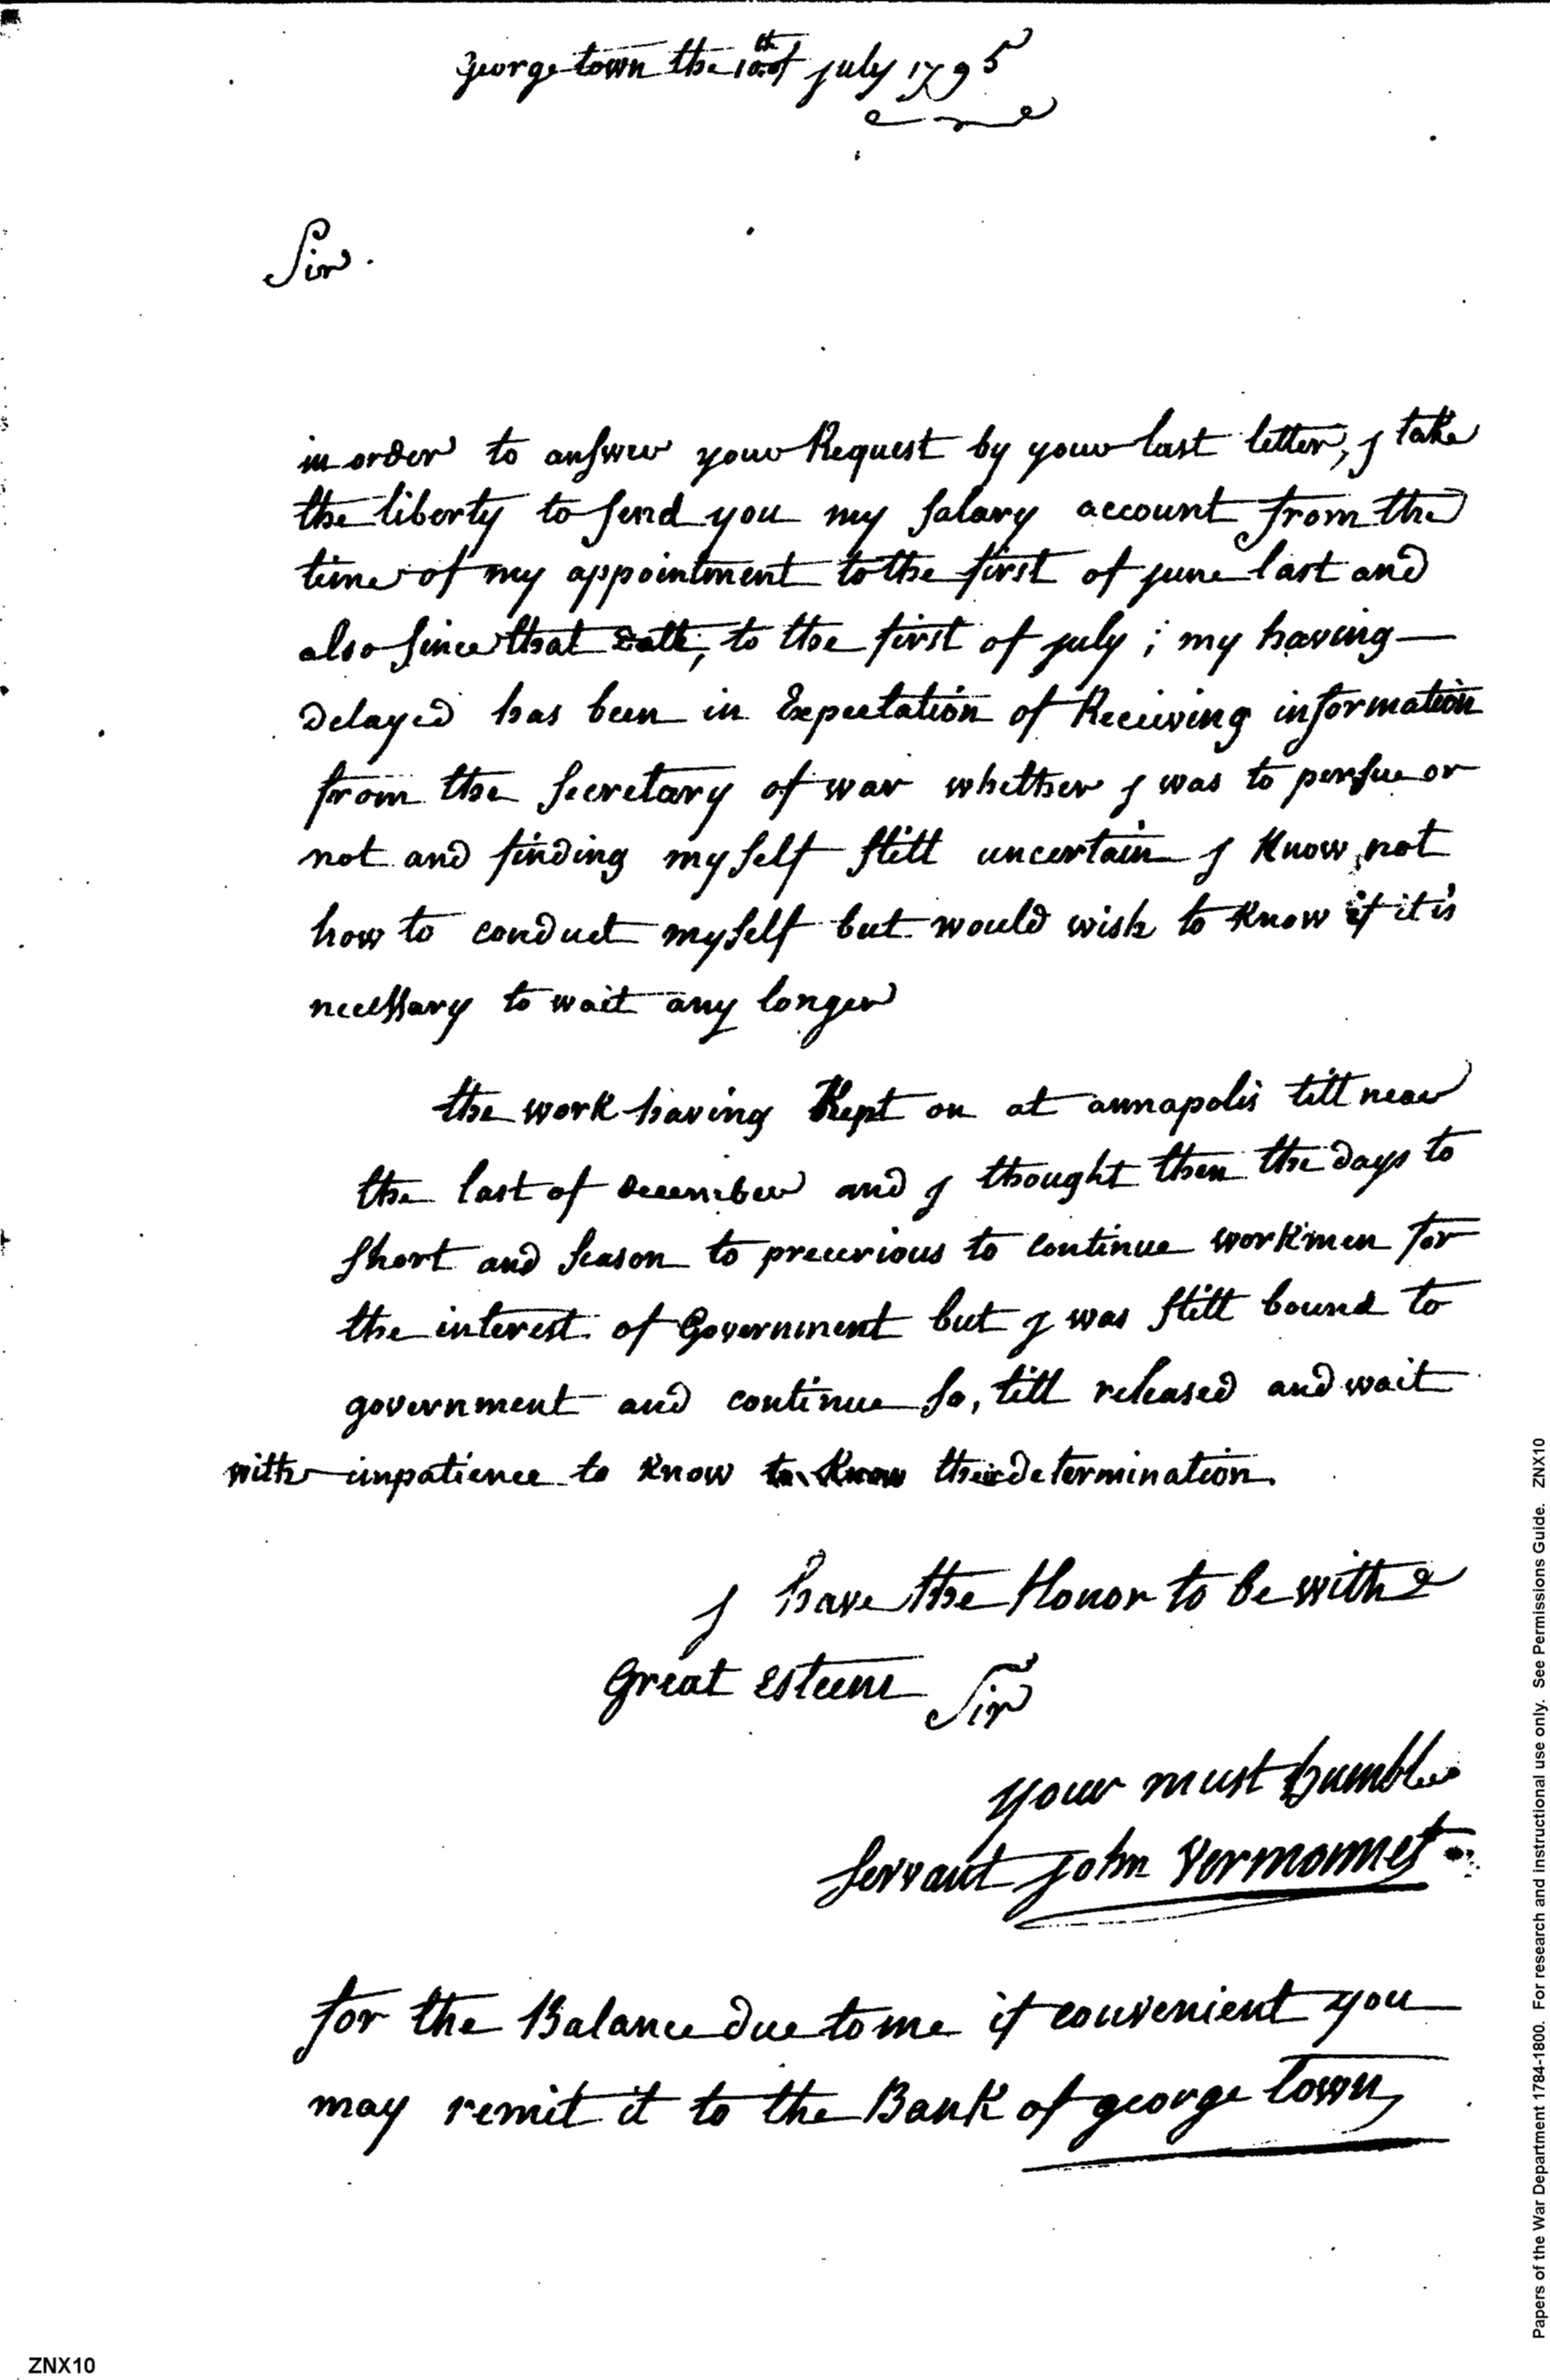 george town the 10th of july 1795
Sir.
in order to answer your Request by your last letter, j take
the liberty to send you my salary account from the
time of my appointment to the first of june last and
also since that date, to the first of july ; my having
delayed has been in Expectation of Receiving information
from the secretary of war whether j was to persue or
not and finding myself still uncertain j Know not
how to conduct myself but would wish to Know if it is
necessary to wait any longer
the work having Kept on at annapolis till near
the last of december and j thought then the days to
short and season to precurious to continue workmen for
the interest of Government but j was still bound to
government and continue so, till released and wait
with impatience to Know to Know their determination.
j have the Honor to be with
Great Esteem Sir
your must humble
servant john Vermonnet
for the Balance due to me if convenient you
may remit it to the Bank of george town
Papers of the War Department 1784-1800. For research and instructional use only. See Permissions Guide. ZNX10
ZNX10